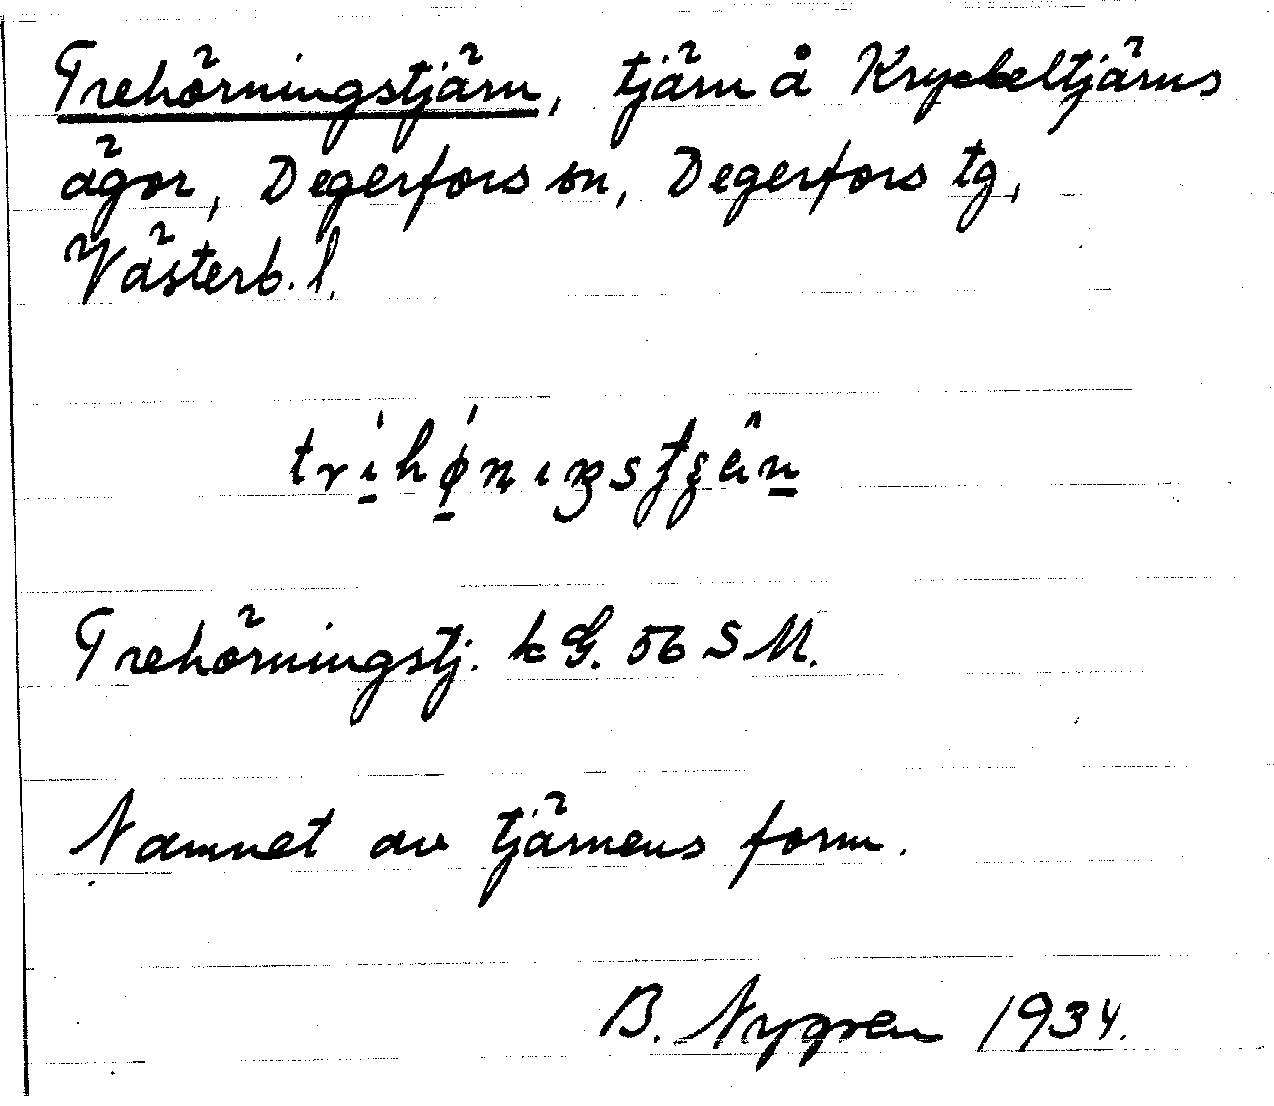 Trehörningstjärn, tjärn å Kryckeltjärns
ägor, Degerfors sn, Degerfors tg,
Västerb. l.
Trehörningstj. kG. 56 SM.
Namnet av tjärnens form.
B. Nygren 1934.